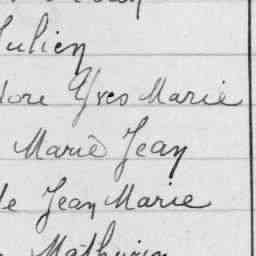 Julien
dore Yves Marie
Marie Jean
de Jean Marie
Mathurin